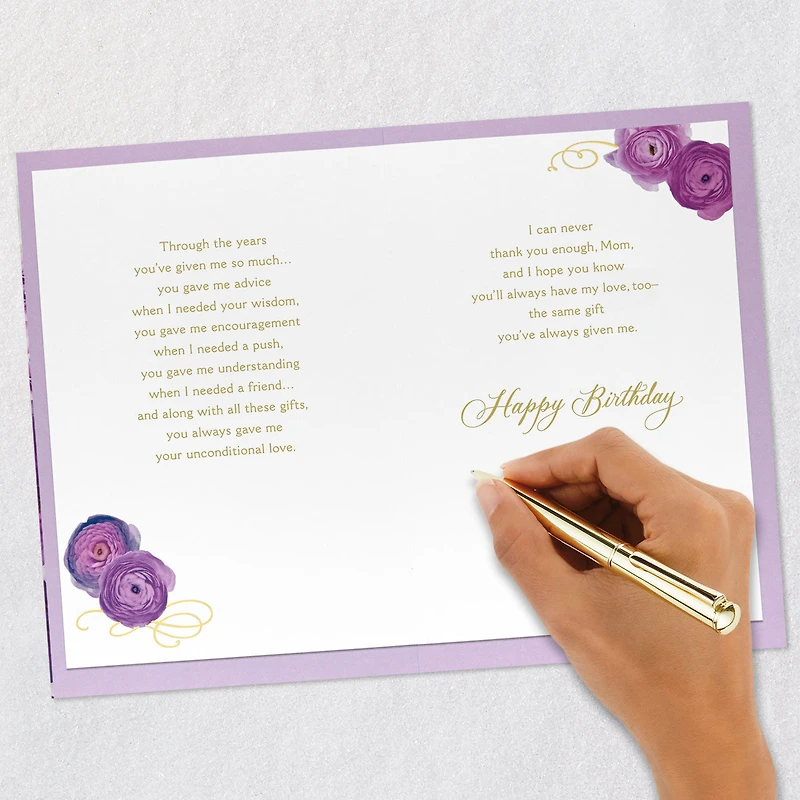 Through the years
you've given me so much...
you gave me advice
when I needed your wisdom,
you gave me encouragement
when I needed a push,
you gave me understanding
when I needed a friend...
and along with all these gifts,
you always gave me
your unconditional love.
I can never
thank you enough, Mom,
and I hope you know
you'll always have my love, too–
the same gift
you've always given me.
Happy Birthday